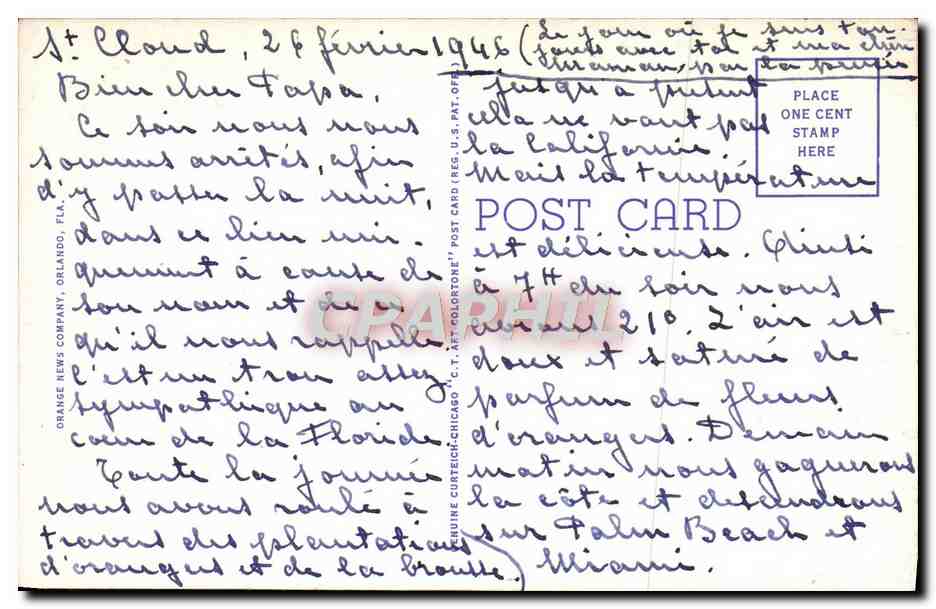 St Cloud, 26 février 1946
Bien cher Papa,
Ce soir nous nous
sommes arrêtés, afin
d'y passer la nuit,
dans ce lieu uni-
quement à cause de
son nom et de ce
qu'il nous rappelle.
C'est un trou assez
sympathique au
cœur de la Floride.
Toute la journée
nous avons roulé à
travers des plantations
d'orangers et de la brousse.
(Le jour où je suis tou-
jours avec toi et ma chère
Maman, par la pensée
jusqu'à présent
cela ne vaut pas
la Californie.
Mais la température
est délicieuse. Ainsi
à 7H du soir nous
avons 21°. L'air est
doux et saturé de
parfum de fleurs
d'orangers. Demain
matin nous gagnerons
la côte et descendrons
sur Palm Beach et
Miami.
POST CARD
PLACE
ONE CENT
STAMP
HERE
ORANGE NEWS COMPANY, ORLANDO, FLA.
GENUINE CURTEICH-CHICAGO "C.T. ART-COLORTONE" POST CARD (REG. U.S. PAT. OFF.)
CPARPHIL